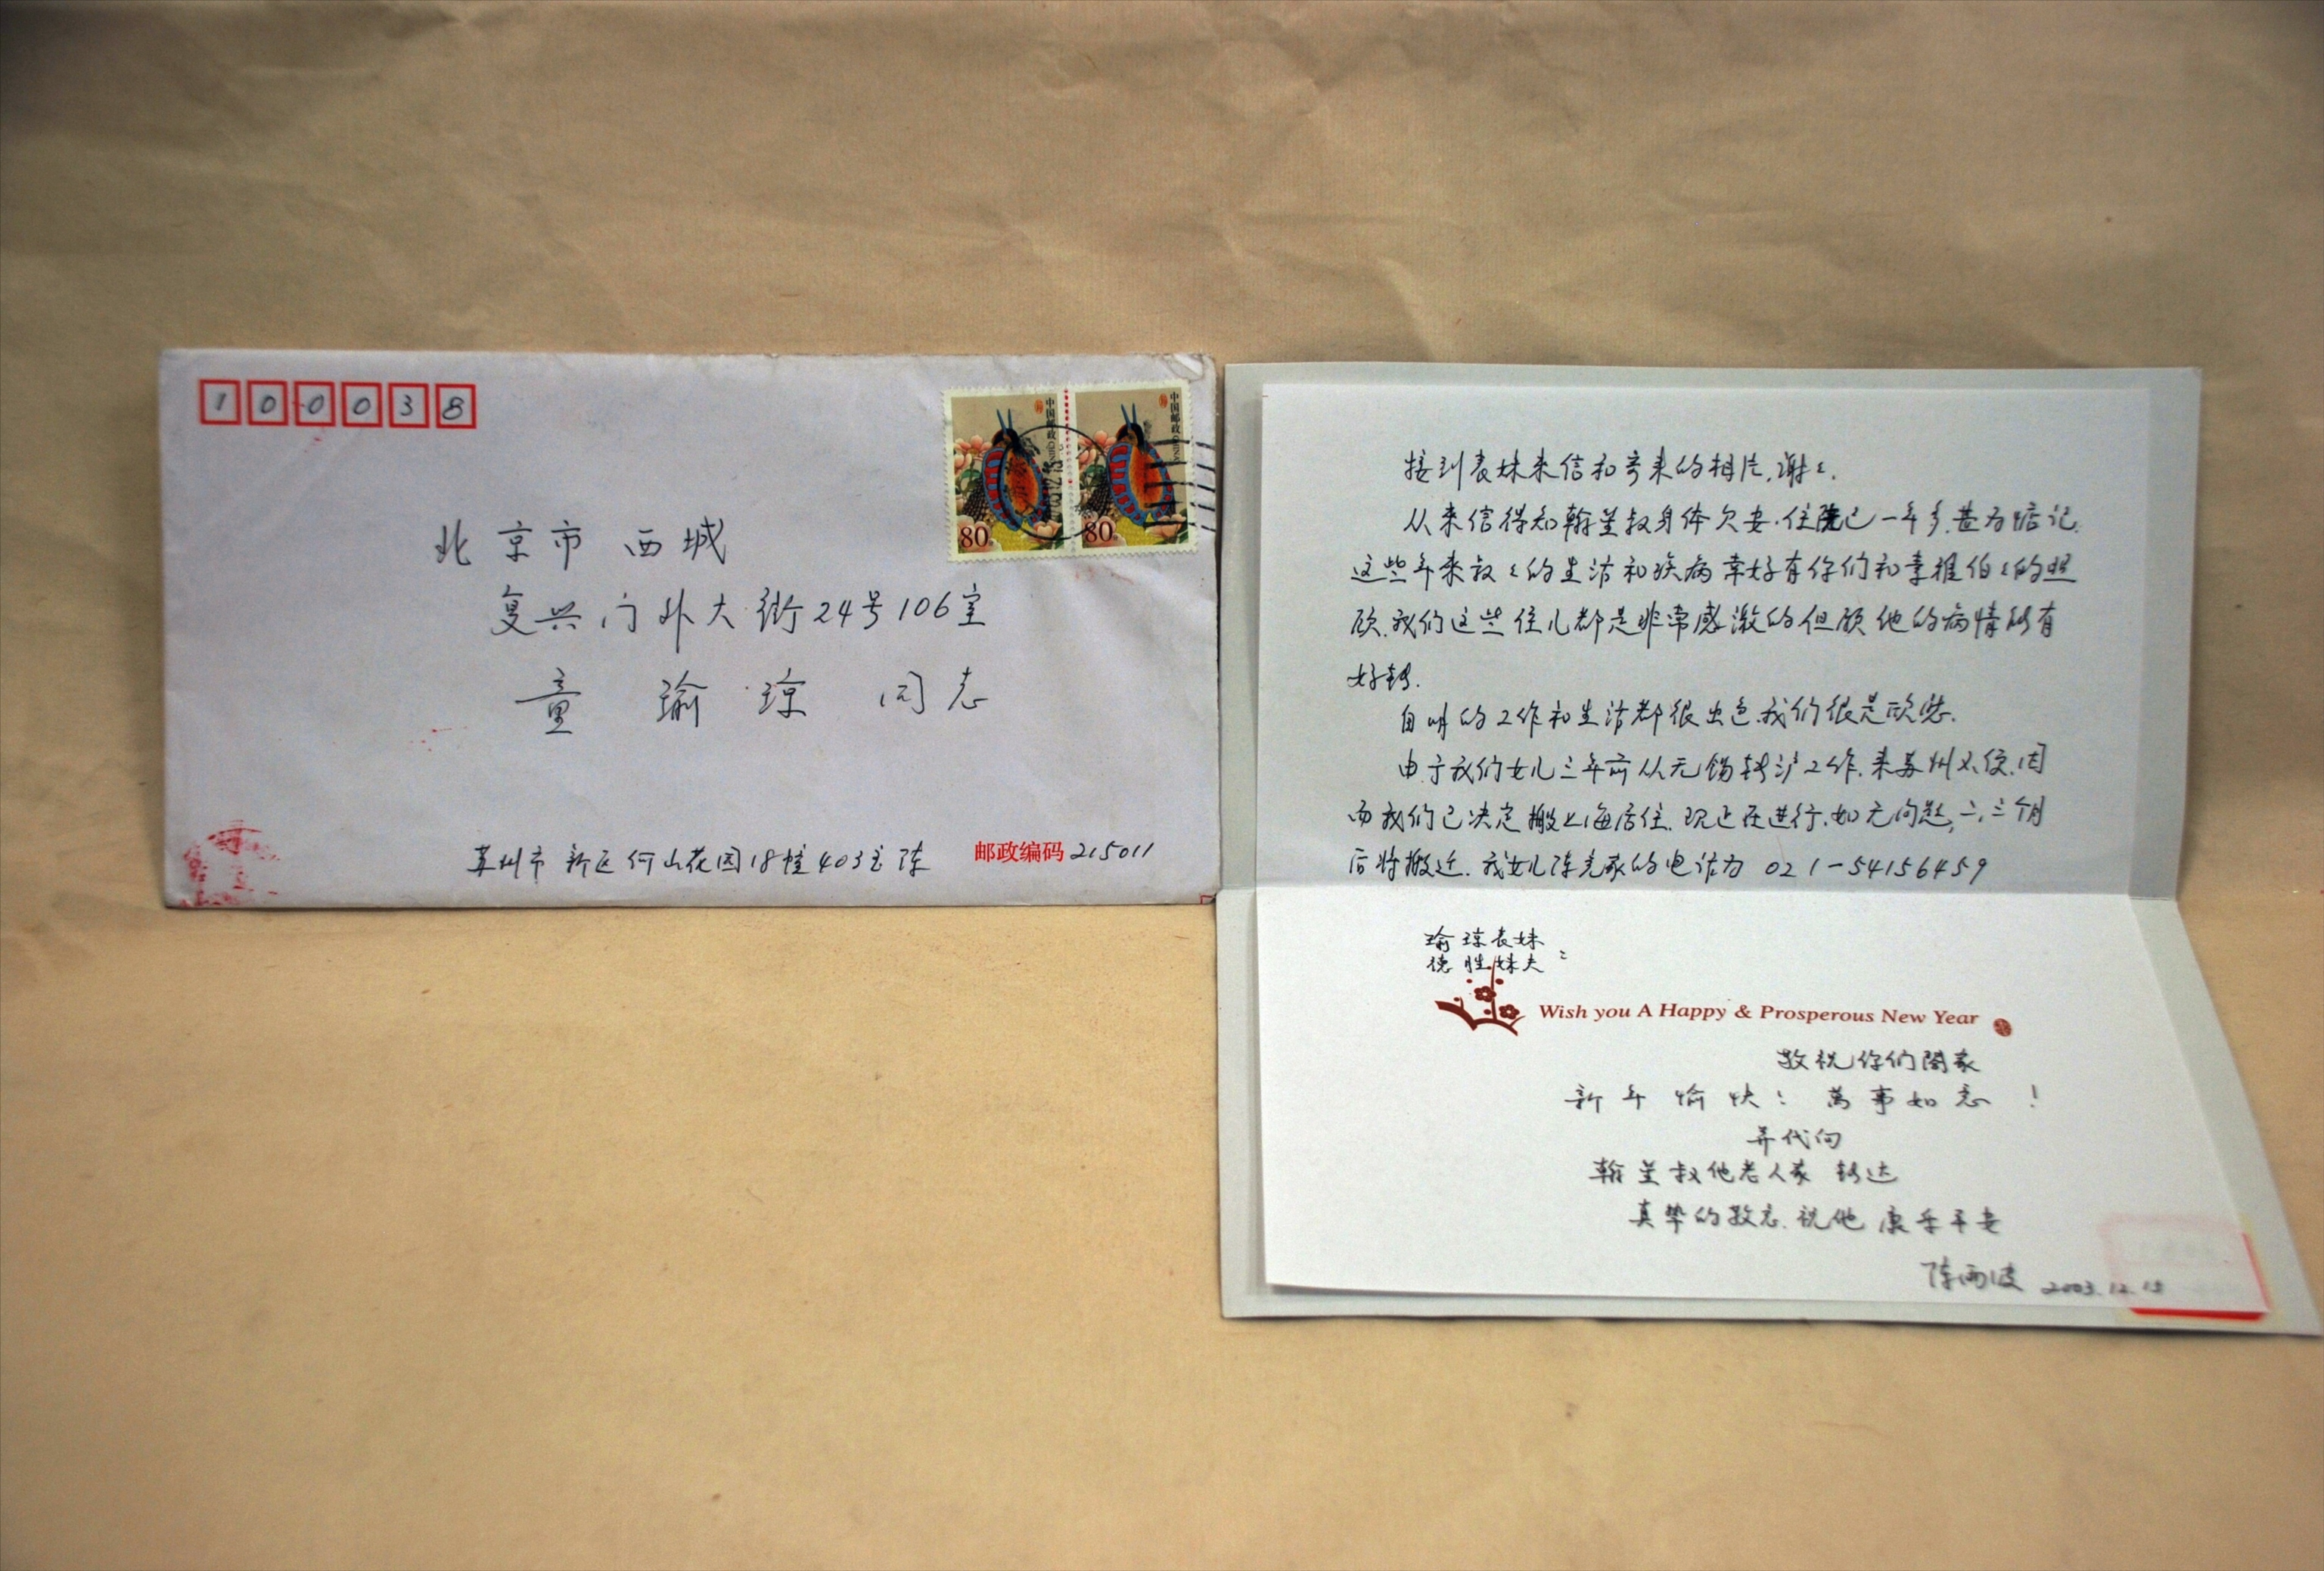 100038
中国邮政 CHINA
80分
中国邮政 CHINA
80分
北京市 西城
复兴门外大街24号106室
童 瑜琼 同志
苏州市 新区何山花园18幢403室 陈
邮政编码 215011
接到表妹来信和寄来的相片,谢〻.
从来信得知翰笙叔身体欠安.住院已一年多.甚为惦记.
这些年来叔〻的生活和疾病幸好有你们和李维伯〻的照
顾.我们这些侄儿都是非常感激的但愿他的病情能有
好转.
自明的工作和生活都很出色.我们很是欣慰.
由于我们女儿三年前从无锡转沪工作.来苏州不便.因
而我们已决定搬上海居住.现正在进行.如无问题,二,三个月
后将搬迁.我女儿陈 家的电话为 021-54156459
瑜琼表妹
德胜妹夫:
Wish you A Happy & Prosperous New Year
敬祝你们阖家
新年愉快!萬事如意!
并代向
翰笙叔他老人家 转达
真挚的敬意.祝他 康乐平安
陈雨波 2003.12.15